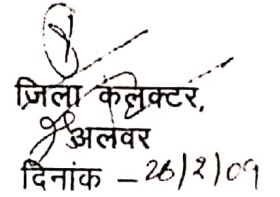 ज़िला कलक्टर,
अलवर
दिनांक - 26/2/09